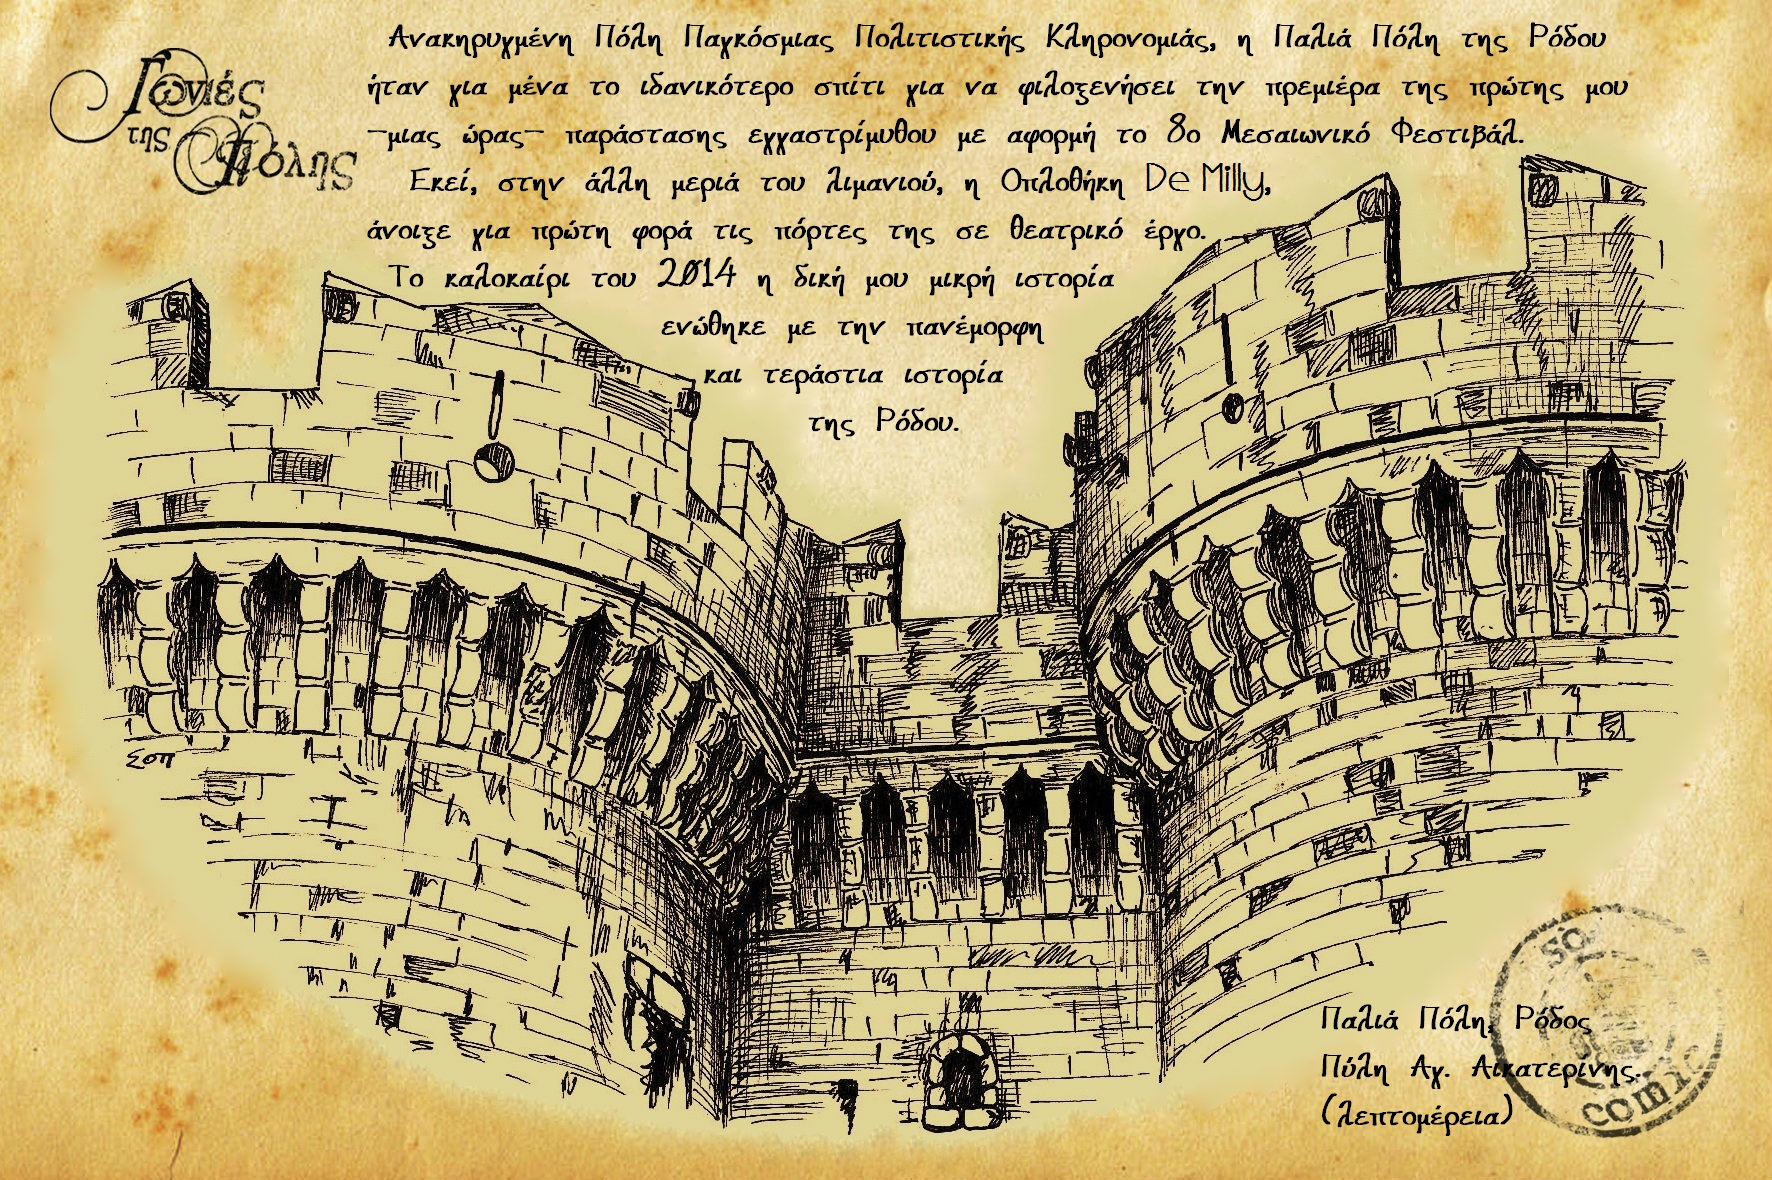 Γωνιές
της
Πόλης
Ανακηρυγμένη Πόλη Παγκόσμιας Πολιτιστικής Κληρονομιάς, η Παλιά Πόλη της Ρόδου
ήταν για μένα το ιδανικότερο σπίτι για να φιλοξενήσει την πρεμιέρα της πρώτης μου
-μιας ώρας- παράστασης εγγαστρίμυθου με αφορμή το 8ο Μεσαιωνικό Φεστιβάλ.
Εκεί, στην άλλη μεριά του λιμανιού, η Οπλοθήκη De Milly,
άνοιξε για πρώτη φορά τις πόρτες της σε θεατρικό έργο.
Το καλοκαίρι του 2014 η δική μου μικρή ιστορία
ενώθηκε με την πανέμορφη
και τεράστια ιστορία
της Ρόδου.
ΣΟΠ
Παλιά Πόλη, Ρόδος
Πύλη Αγ. Αικατερίνης.
(λεπτομέρεια)
comic